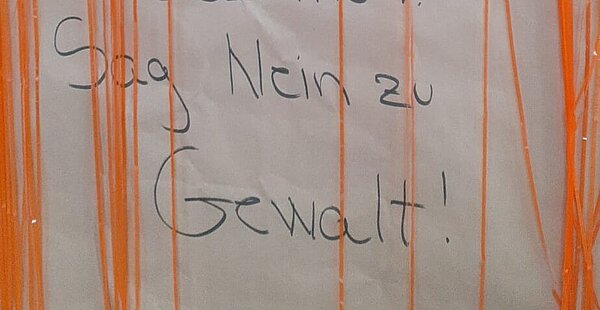 Sag Nein zu
Gewalt!